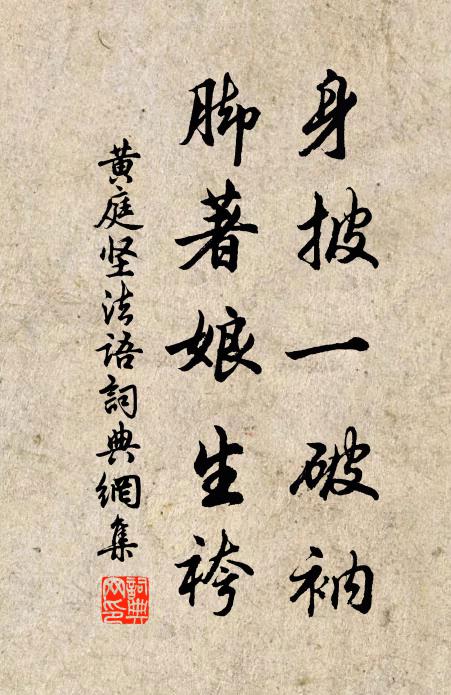 身披一破衲
脚著娘生袴
黄庭坚法语詞典網集
詞典网印